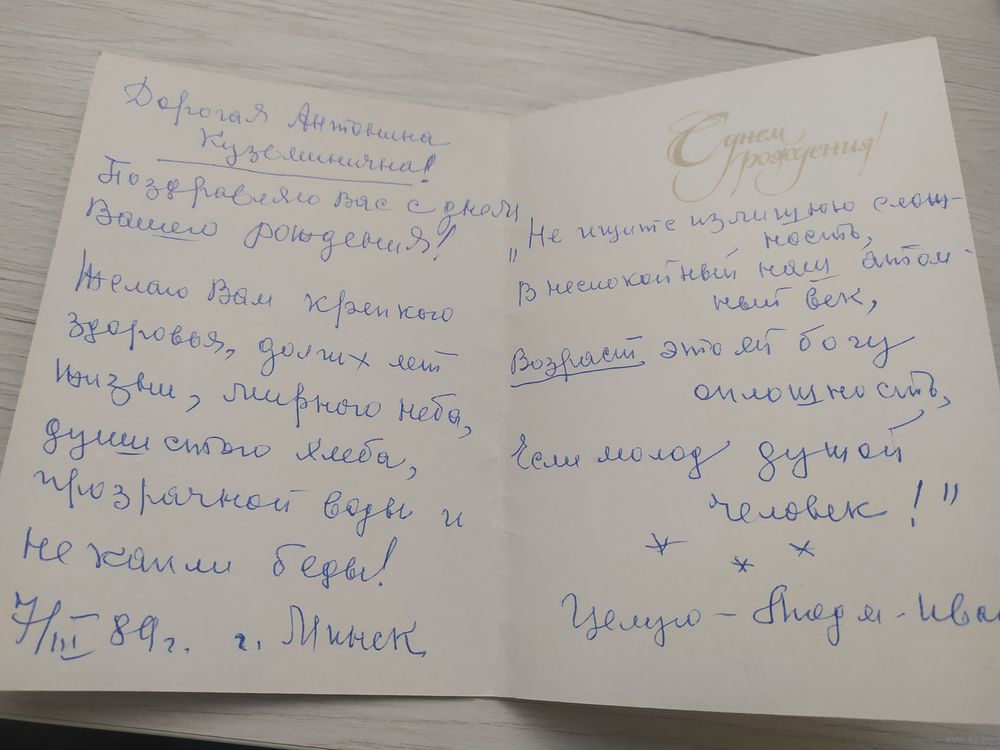 Дорогая Антонина
Кузьминична!
Поздравляю Вас с днем
Вашего рождения!
Желаю Вам крепкого
здоровья, долгих лет
жизни, мирного неба,
душистого хлеба,
прозрачной воды и
не капли беды!
7/III 89г. г. Минск
С днем
рождения!
"Не ищите излишнюю слож-
ность,
В неспокойный наш атом-
ный век,
Возраст это ей богу
оплошность,
Если молод душой
человек!"
Целую –
www.ay.by